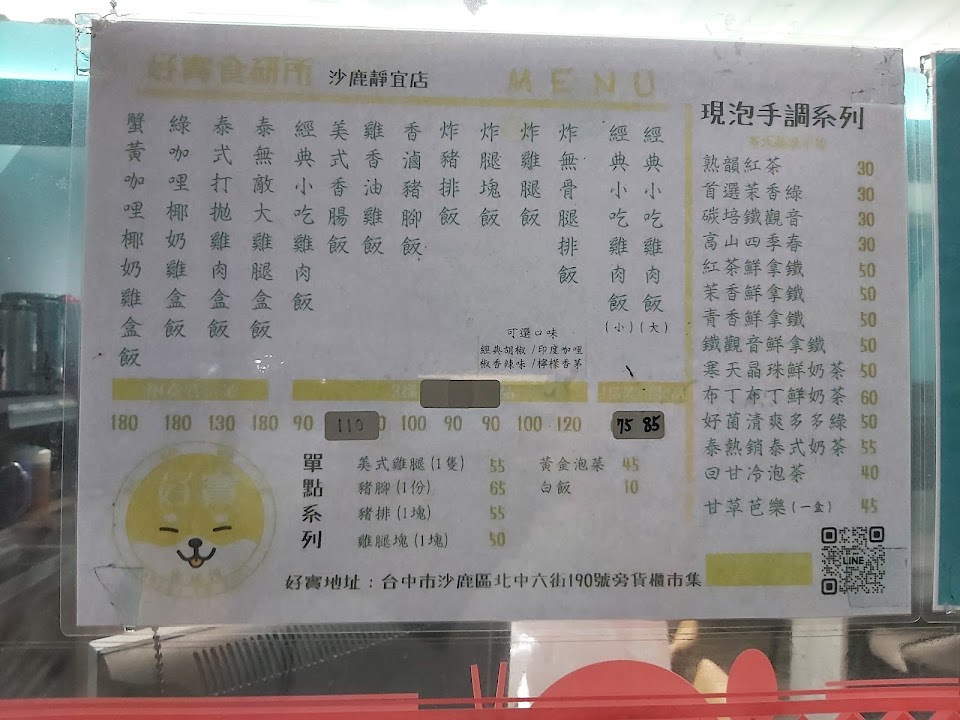 好實食研所 沙鹿靜宜店 MENU
經典小吃雞肉飯(大)
經典小吃雞肉飯(小)
炸無骨腿排飯
炸雞腿飯
炸腿塊飯
炸豬排飯
香滷豬腳飯
雞香油雞飯
美式香腸飯
經典小吃雞肉飯
泰無敵大雞腿盒飯
泰式打拋雞肉盒飯
綠咖哩椰奶雞盒飯
蟹黃咖哩椰奶雞盒飯
可選口味
經典胡椒/印度咖哩
椒香辣味/檸檬香茅
180 180 130 180 90 110 100 90 90 100 120 75 85
單點系列
美式雞腿(1隻) 55
豬腳(1份) 65
豬排(1塊) 55
雞腿塊(1塊) 50
黃金泡菜 45
白飯 10
現泡手調系列
熟韻紅茶 30
首選茉香綠 30
碳培鐵觀音 30
高山四季春 30
紅茶鮮拿鐵 50
茉香鮮拿鐵 50
青香鮮拿鐵 50
鐵觀音鮮拿鐵 50
寒天晶珠鮮奶茶 50
布丁布丁鮮奶茶 60
好菌清爽多多綠 50
泰熱銷泰式奶茶 55
回甘冷泡茶 40
甘草芭樂(一盒) 45
LINE
好實地址：台中市沙鹿區北中六街190號旁貨櫃市集